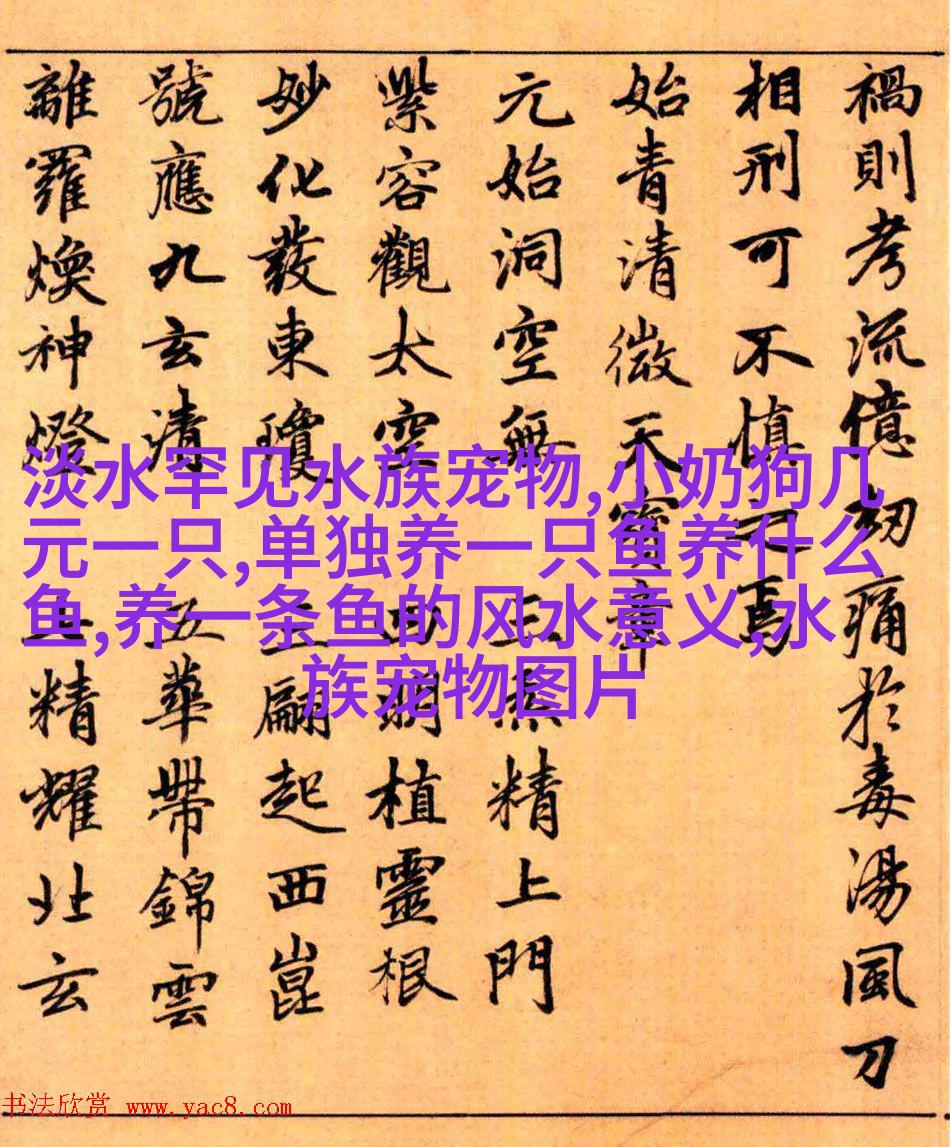 禍則考流億劫痛於毒湯風刀
相刑可不慎之焉
始青清微天寶章
元始洞空無 三炁精上門
紫容觀太空 植靈根
妙化發東瓊 上翩起西崑
號應九玄清 五華帶錦雲
離羅煥神燈 精耀北玄
淡水罕见水族宠物,小奶狗几
元一只,单独养一只鱼养什么
鱼,养一条鱼的风水意义,水
族宠物图片
书法欣赏 www.yac8.com